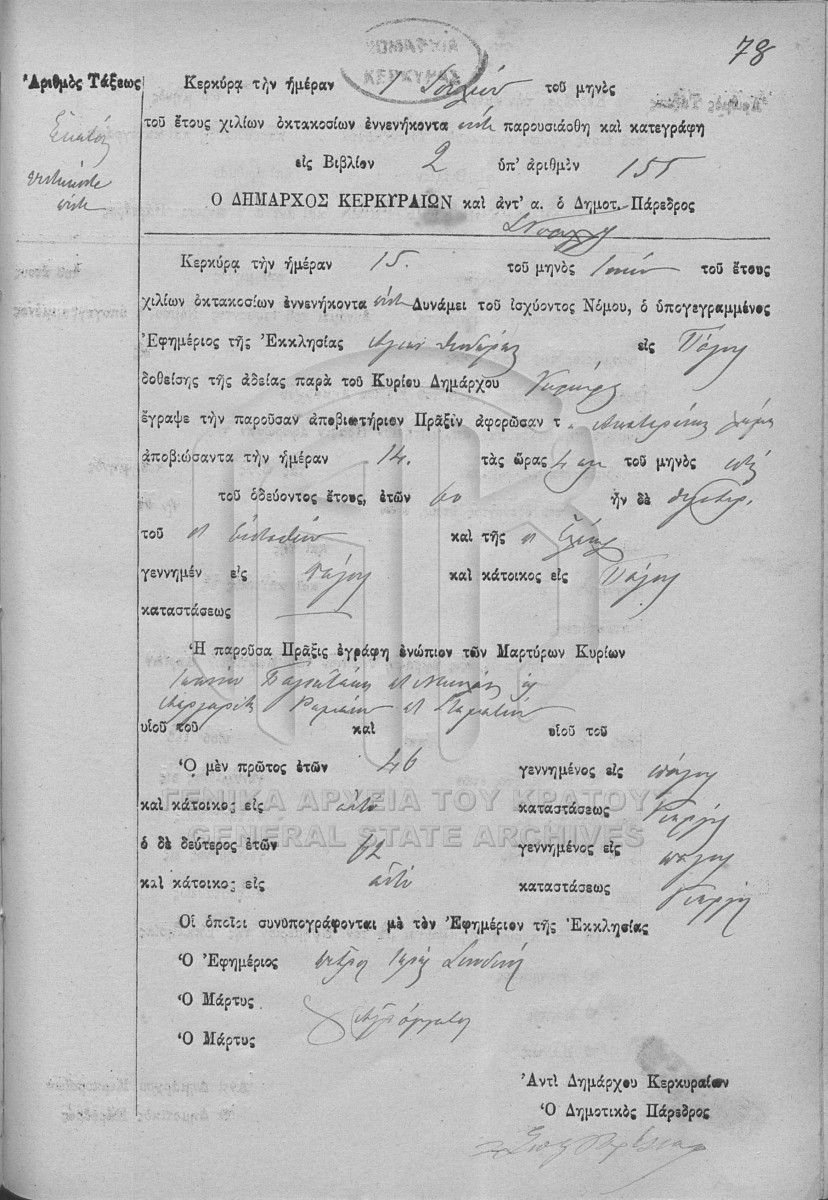 78
ΝΟΜΑΡΧΙΑ
ΚΕΡΚΥΡΑΣ
Ἀριθμὸς Τάξεως
Ἑκατόν
πεντήκοντα
πέντε
Κερκύρα τὴν ἡμέραν 1 Ἰουλίου τοῦ μηνὸς
τοῦ ἔτους χιλίων ὀκτακοσίων ἐννενήκοντα πέντε παρουσιάσθη καὶ κατεγράφη
εἰς Βιβλίον 2 ὑπ' ἀριθμὸν 155
Ο ΔΗΜΑΡΧΟΣ ΚΕΡΚΥΡΑΙΩΝ καὶ ἀντ' α. ὁ Δημοτ. Πάρεδρος
Κερκύρα τὴν ἡμέραν 15. τοῦ μηνὸς Ἰουνίου τοῦ ἔτους
χιλίων ὀκτακοσίων ἐννενήκοντα πέντε Δυνάμει τοῦ ἰσχύοντος Νόμου, ὁ ὑπογεγραμμένος
Ἐφημέριος τῆς Ἐκκλησίας Ἁγίας εἰς Πάγους
δοθείσης τῆς ἀδείας παρὰ τοῦ Κυρίου Δημάρχου Κερκύρας
ἔγραψε τὴν παροῦσαν ἀποβιωτήριον Πρᾶξιν ἀφορῶσαν τ. Αἰκατερίναν
ἀποβιώσαντα τὴν ἡμέραν 14. τὰς ὥρας 4 τοῦ μηνὸς
τοῦ ὁδεύοντος ἔτους, ἐτῶν 60 ἦν δὲ θυγάτηρ.
τοῦ π Εὐσταθίου καὶ τῆς π Ἑλένης
γεννημέν εἰς Πάγους καὶ κάτοικος εἰς Πάγους
καταστάσεως
Ἡ παροῦσα Πρᾶξις ἐγράφη ἐνώπιον τῶν Μαρτύρων Κυρίων
Ἰωάννου
Σταματίου
υἱοῦ τοῦ καὶ υἱοῦ τοῦ
Ὁ μὲν πρῶτος ἐτῶν 46 γεννημένος εἰς Πάγους
καὶ κάτοικος εἰς αὐτό καταστάσεως Γεωργός
ὁ δὲ δεύτερος ἐτῶν 62 γεννημένος εἰς Πάγους
καὶ κάτοικος εἰς αὐτό καταστάσεως Γεωργός
Οἱ ὁποῖοι συνυπογράφονται μὲ τὸν Ἐφημέριον τῆς Ἐκκλησίας
Ὁ Ἐφημέριος Πέτρος Ἱερεύς
Ὁ Μάρτυς
Ἀγράμματοι
Ὁ Μάρτυς
Ἀντὶ Δημάρχου Κερκυραίων
Ὁ Δημοτικὸς Πάρεδρος
ΓΕΝΙΚΑ ΑΡΧΕΙΑ ΤΟΥ ΚΡΑΤΟΥΣ
GENERAL STATE ARCHIVES